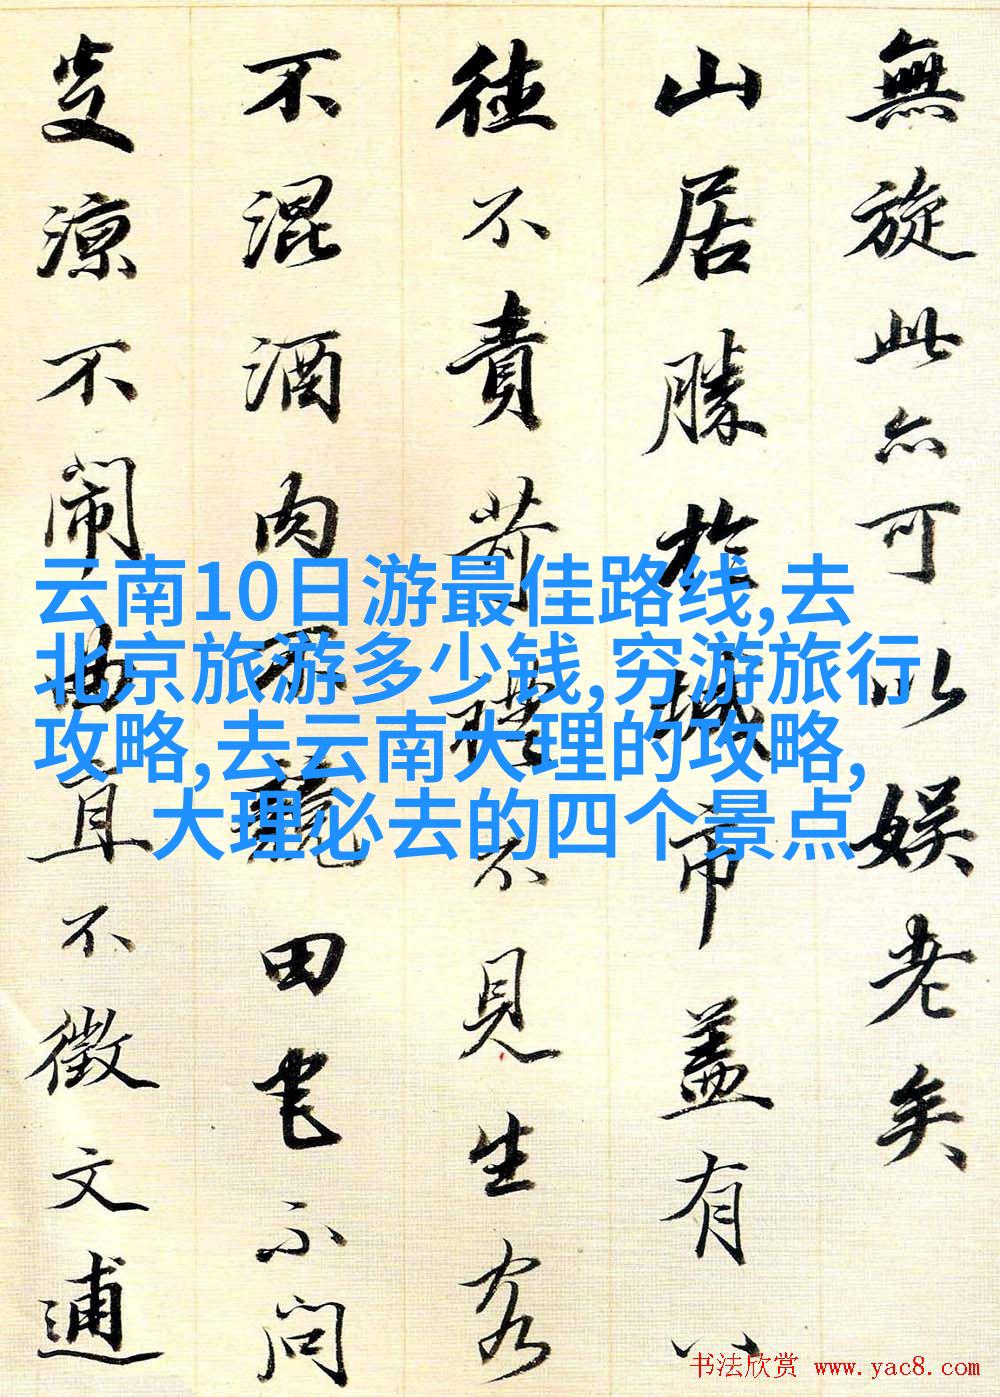 無旋此亦可以娱老矣
山居勝於城市盖有八
德不責苛禮不見生客
不混酒肉不競田宅不問
炎凉不闹曲直不徵文逋
云南10日游最佳路线,去
北京旅游多少钱,穷游旅行
攻略,去云南大理的攻略,
大理必去的四个景点
书法欣赏 www.yac8.com